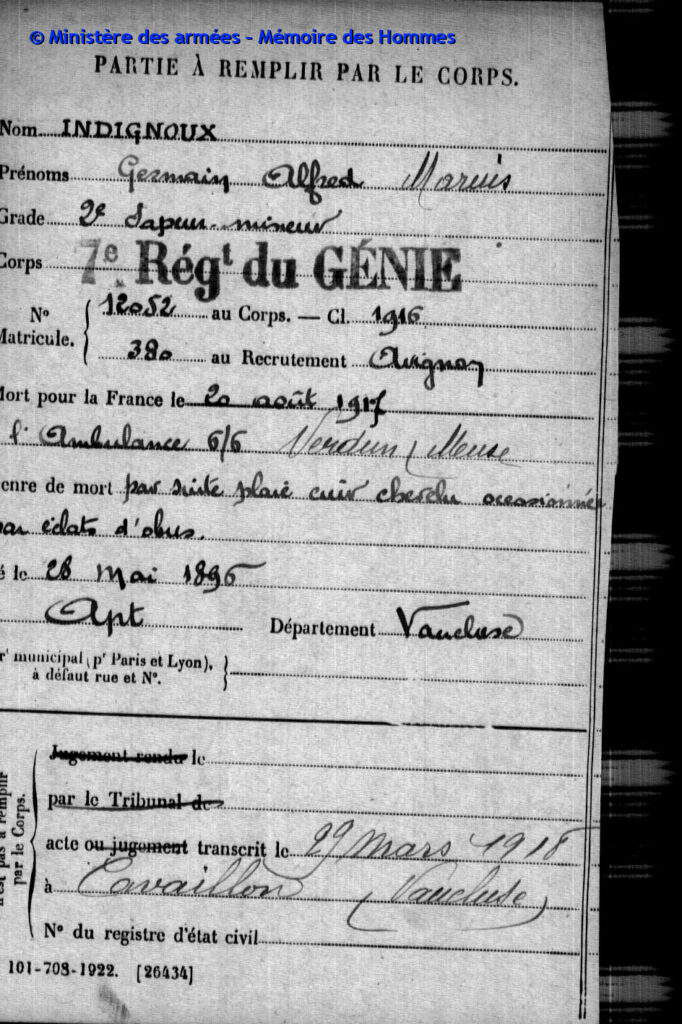 © Ministère des armées - Mémoire des Hommes
PARTIE À REMPLIR PAR LE CORPS.
Nom INDIGNOUX
Prénoms Germain Alfred Marius
Grade 2e Sapeur-mineur
Corps 7e Régt du GÉNIE
No Matricule. { 12052 au Corps. — Cl. 1916
380 au Recrutement Avignon
Mort pour la France le 20 août 1917
l'Ambulance 6/6 Verdun (Meuse
enre de mort par suite plaie cuir chevelu occasionnée
par éclats d'obus.
é le 28 Mai 1896
Apt Département Vaucluse
rt municipal (pr Paris et Lyon),
à défaut rue et No. }
Jugement rendu le
par le Tribunal de
acte ou jugement transcrit le 29 mars 1918
à Cavaillon (Vaucluse)
No du registre d'état civil
n'est pas à remplir
par le Corps.
101-708-1922. [26434]